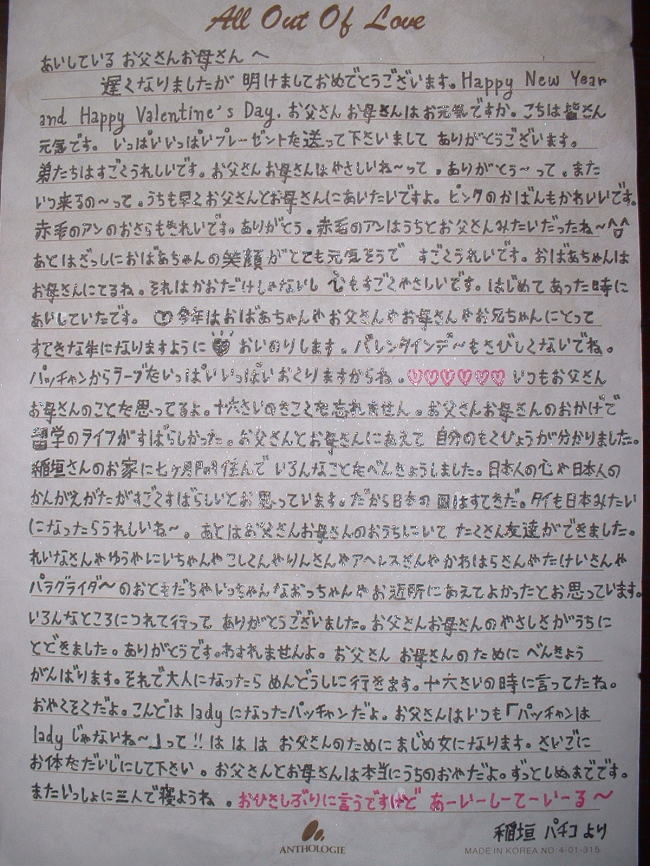 All Out Of Love
あいしている お父さんお母さん 〜
遅くなりましたが 明けましておめでとうございます。Happy New Year
and Happy Valentine's Day. お父さんお母さんはお元気ですか。こちは皆さん
元気です。いっぱいいっぱいプレーゼントを送って下さいまして ありがとうございます。
弟たちはすごくうれしいです。お父さんお母さんはやさしいね〜って。ありがとう〜って。また
いつ来るの〜って。うちも早くお父さんとお母さんにあいたいですよ。ピンクのかばんもかわいいです。
赤毛のアンのおさらもきれいです。ありがとう。赤毛のアンはうちとお父さんみたいだったね〜^^
あとはざっしにおばあちゃんの笑顔がとても元気そうで すごくうれいです。おばあちゃんは
お母さんにてるね。それはかおだけじゃないし 心もすごくやさしいです。はじめてあった時に
あいしていたです。今年はおばあちゃんやお父さんやお母さんやお兄ちゃんにとって
すてきな年になりますように おいのりします。バレンタインデ〜もさびしくないでね。
パッチャンからラーブをいっぱいいっぱいおくりますからね。♡♡♡♡♡♡ いつもお父さん
お母さんのことを思ってるよ。十六さいのきこくを忘れません。お父さんお母さんのおかげで
留学のライフがすばらしかった。お父さんとお母さんにあえて 自分のもくひょうが分かりました。
稲垣さんのお家に七ヶ月間住んで いろんなことをべんきょうしました。日本人の心や日本人の
かんがえがたがすごくすばらしいとお思っています。だから日本の国はすてきだ。タイも日本みたい
になったらうれしいね〜。あとはお父さんお母さんのおうちにいて たくさん友達ができました。
れいなさんやゆうやにいちゃんやこしくんやりんさんやアヘレスさんやかわはらさんやたけいさんや
パラグライダ〜のおともだちやいっちゃんなおっちゃんやお近所にあえてよかったとお思っています。
いろんなところにつれて行って ありがとうございました。お父さんお母さんのやさしさがうちに
とどきました。ありがとうです。わすれませんよ。お父さん お母さんのために べんきょう
がんばります。それで大人になったら めんどうしに行きます。十六さいの時に言ってたね。
おやくそくだよ。こんどは lady になったパッチャンだよ。お父さんはいつも「パッチャンは
lady じゃないね〜」って!! は は は お父さんのためにまじめ女になります。さいごに
お体をだいじにして下さい。お父さんとお母さんは本当にうちのおやだよ。ずっとしぬまでです。
またいっしょに三人で寝ようね。おひさしぶりに言うですけど あーいーしーてーいーる〜
稲垣 パチコ より
ANTHOLOGIE
MADE IN KOREA NO: 4-01-315